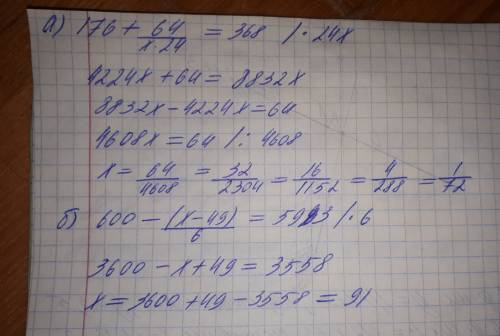 а) 176 + 64/(x·24) = 368 /·24x
4224x + 64 = 8832x
8832x - 4224x = 64
4608x = 64 /: 4608
x = 64/4608 = 32/2304 = 16/1152 = 4/288 = 1/72
б) 600 - (x-49)/6 = 593 /·6
3600 - x + 49 = 3558
x = 3600 + 49 - 3558 = 91